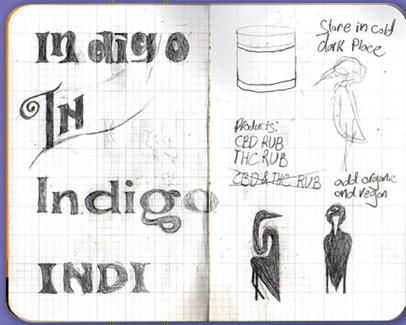 Indigo
In
Indigo
INDI
Store in cold
dark Place
Products:
CBD RUB
THC RUB
CBD & THC RUB
add organic
and vegan